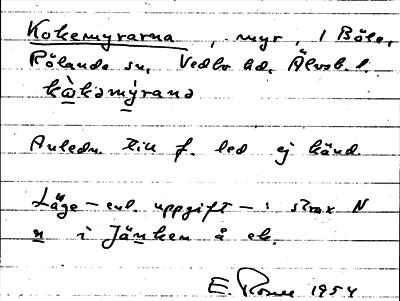 Kokemyrarna, myr, i Böle,
Rölanda sn, Vedbo hd, Älvsb. l.
kὰkəmýrana
Anledn. till f. led ej känd.
Läge – enl. uppgift – : strax N
n i Jänken å ek.
E. 1954